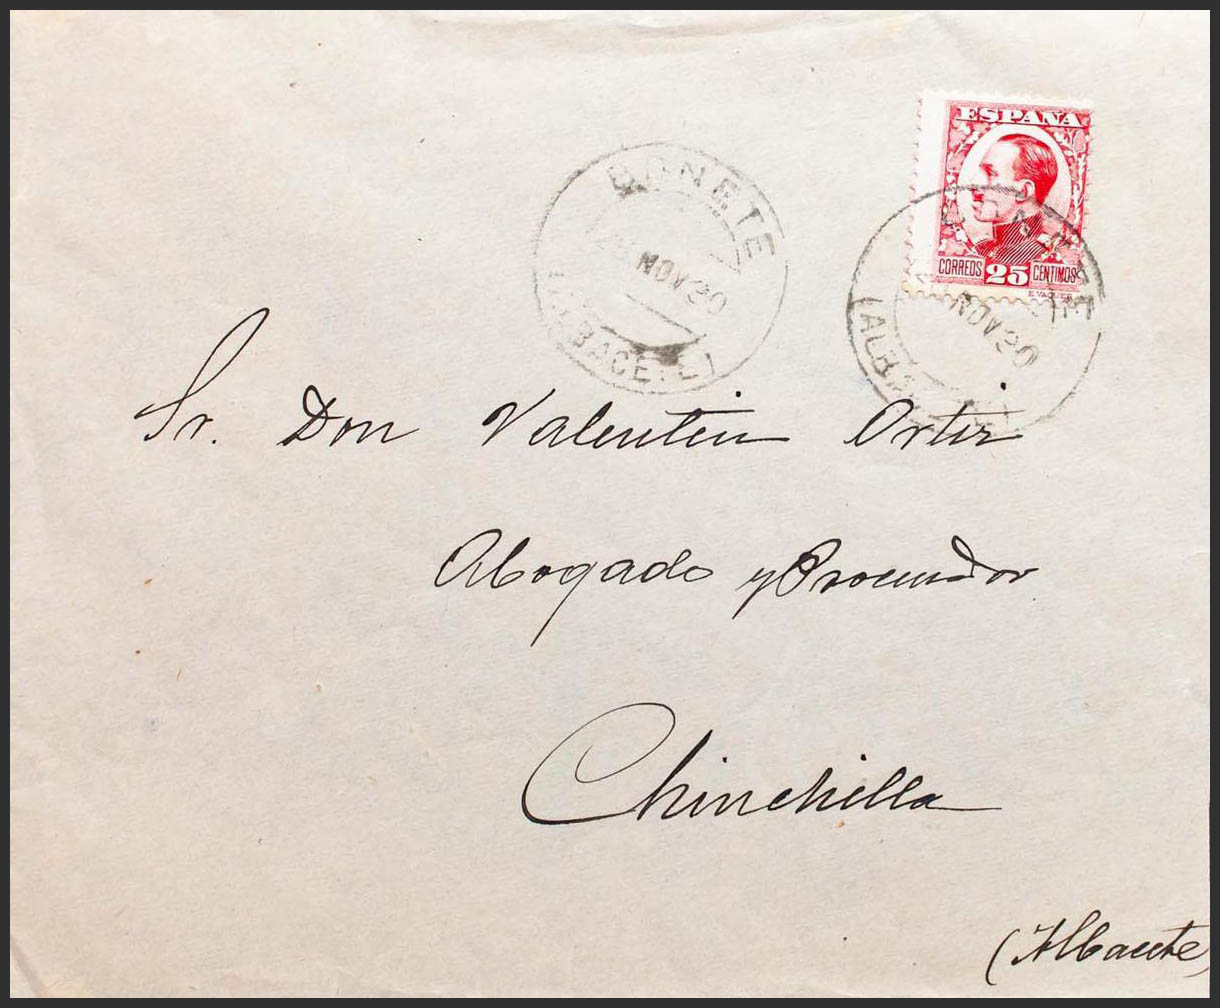 ESPAÑA
CORREOS 25 CENTIMOS
E. VAQUER
BONETE
NOV 30
(ALBACETE)
NOV 30
Sr. Don Valentin Ortiz
Abogado y Procurador
Chinchilla
(Albacete)